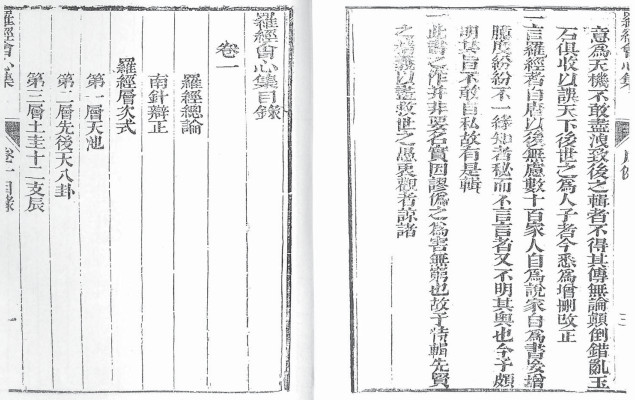 意為天機不敢盡洩致後之輯者不得其傳無論顛倒錯亂玉
石俱收以誤天下後世之為人子者今悉為增刪改正
一言羅經者自唐以後無慮數十百家人自為說家自為書妄增
臆度紛紛不一緣知者秘而不言言者又不明其奧也今予頗
明其旨不敢自私故有是輯
一此書之作并非要名實因謬偽之為害無窮也故予特輯先賢
之義以盡救世之愚衷觀者諒諸
羅經會心集
羅經會心集目錄
卷一
羅經總論
南針辯正
羅經層次式
第一層天池
第二層先後天八卦
第三層土圭十二支辰
羅經會心集
卷一目錄
一